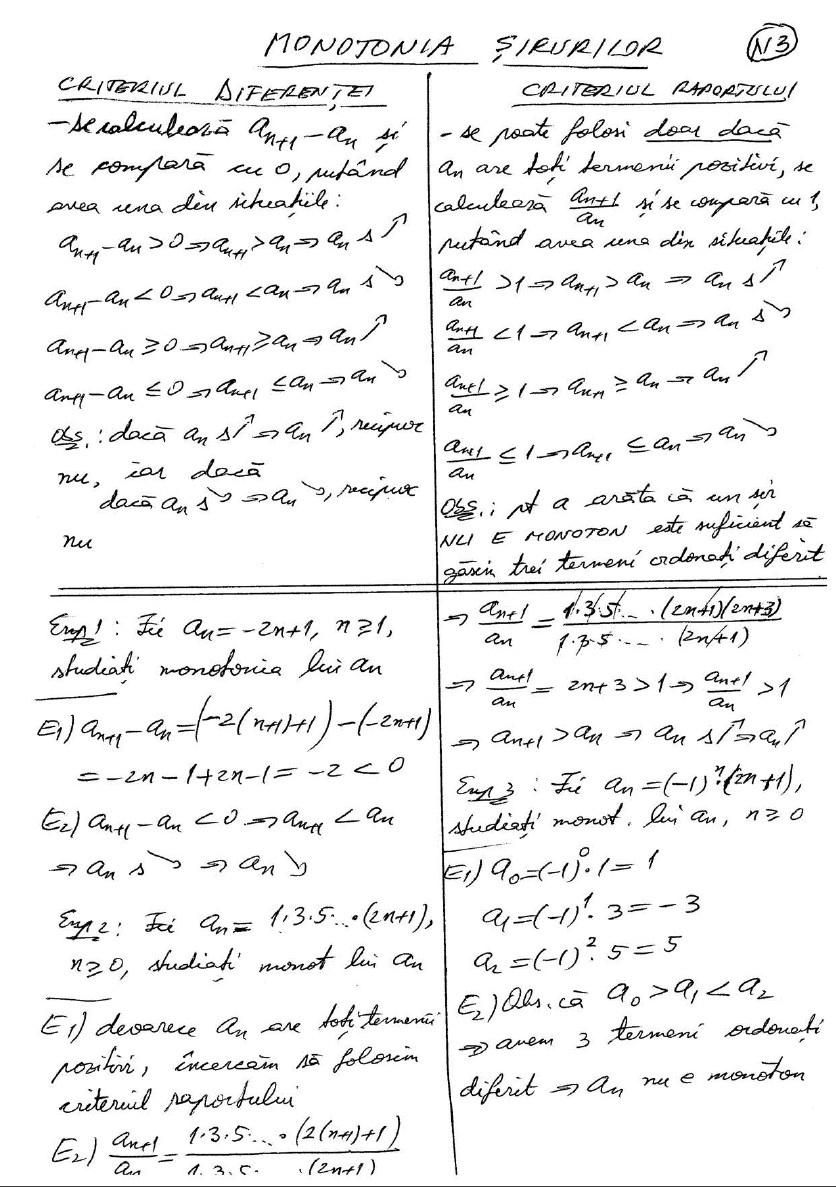 MONOTONIA ȘIRURILOR
N3
CRITERIUL DIFERENȚEI
- se calculează aₙ₊₁ - aₙ și
se compară cu 0, putând
avea una din situațiile:
aₙ₊₁ - aₙ > 0 ⇒ aₙ₊₁ > aₙ ⇒ aₙ s↗
aₙ₊₁ - aₙ < 0 ⇒ aₙ₊₁ < aₙ ⇒ aₙ s↘
aₙ₊₁ - aₙ ≥ 0 ⇒ aₙ₊₁ ≥ aₙ ⇒ aₙ ↗
aₙ₊₁ - aₙ ≤ 0 ⇒ aₙ₊₁ ≤ aₙ ⇒ aₙ ↘
Obs.: dacă aₙ s↗ ⇒ aₙ ↗, reciproc
nu, iar dacă
dacă aₙ s↘ ⇒ aₙ ↘, reciproc
nu
CRITERIUL RAPORTULUI
- se poate folosi doar dacă
aₙ are toți termenii pozitivi, se
calculează aₙ₊₁/aₙ și se compară cu 1,
putând avea una din situațiile:
aₙ₊₁/aₙ > 1 ⇒ aₙ₊₁ > aₙ ⇒ aₙ s↗
aₙ₊₁/aₙ < 1 ⇒ aₙ₊₁ < aₙ ⇒ aₙ s↘
aₙ₊₁/aₙ ≥ 1 ⇒ aₙ₊₁ ≥ aₙ ⇒ aₙ ↗
aₙ₊₁/aₙ ≤ 1 ⇒ aₙ₊₁ ≤ aₙ ⇒ aₙ ↘
Obs.: pt a arăta că un șir
NU E MONOTON este suficient să
găsim trei termeni ordonați diferit
Exp 1: Fie aₙ = -2n+1, n ≥ 1,
studiați monotonia lui aₙ
E₁) aₙ₊₁ - aₙ = (-2(n+1)+1) - (-2n+1)
= -2n - 1 + 2n - 1 = -2 < 0
E₂) aₙ₊₁ - aₙ < 0 ⇒ aₙ₊₁ < aₙ
⇒ aₙ s↘ ⇒ aₙ ↘
Exp 2: Fie aₙ = 1·3·5·...·(2n+1),
n ≥ 0, studiați monot lui aₙ
E₁) deoarece aₙ are toți termenii
pozitivi, încercăm să folosim
criteriul raportului
E₂) aₙ₊₁/aₙ = 1·3·5·...·(2(n+1)+1) / 1·3·5·...·(2n+1)
⇒ aₙ₊₁/aₙ = 1·3·5·...·(2n+1)(2n+3) / 1·3·5·...·(2n+1)
⇒ aₙ₊₁/aₙ = 2n+3 > 1 ⇒ aₙ₊₁/aₙ > 1
⇒ aₙ₊₁ > aₙ ⇒ aₙ s↗ ⇒ aₙ ↗
Exp 3: Fie aₙ = (-1)ⁿ·(2n+1),
studiați monot. lui aₙ, n ≥ 0
E₁) a₀ = (-1)⁰·1 = 1
a₁ = (-1)¹·3 = -3
a₂ = (-1)²·5 = 5
E₂) Obs. că a₀ > a₁ < a₂
⇒ avem 3 termeni ordonați
diferit ⇒ aₙ nu e monoton